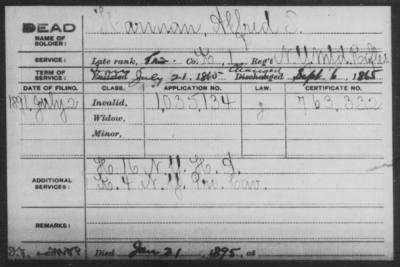 DEAD
NAME OF SOLDIER:
Harman, Alfred S.
SERVICE:
Late rank, Co. K, 1 Reg't N.Y. Mtd. Rifles
TERM OF SERVICE:
Enlisted July 21, 1865 Discharged Sept. 6, 1865
DATE OF FILING. CLASS. APPLICATION NO. LAW. CERTIFICATE NO.
1891 July 2 Invalid, 1035134 763.332
Widow,
Minor,
ADDITIONAL SERVICES:
K. 16 N.Y. H. A.
K. 4 N.Y. Pro. Cav.
REMARKS:
Died Jan 21, 1895, at